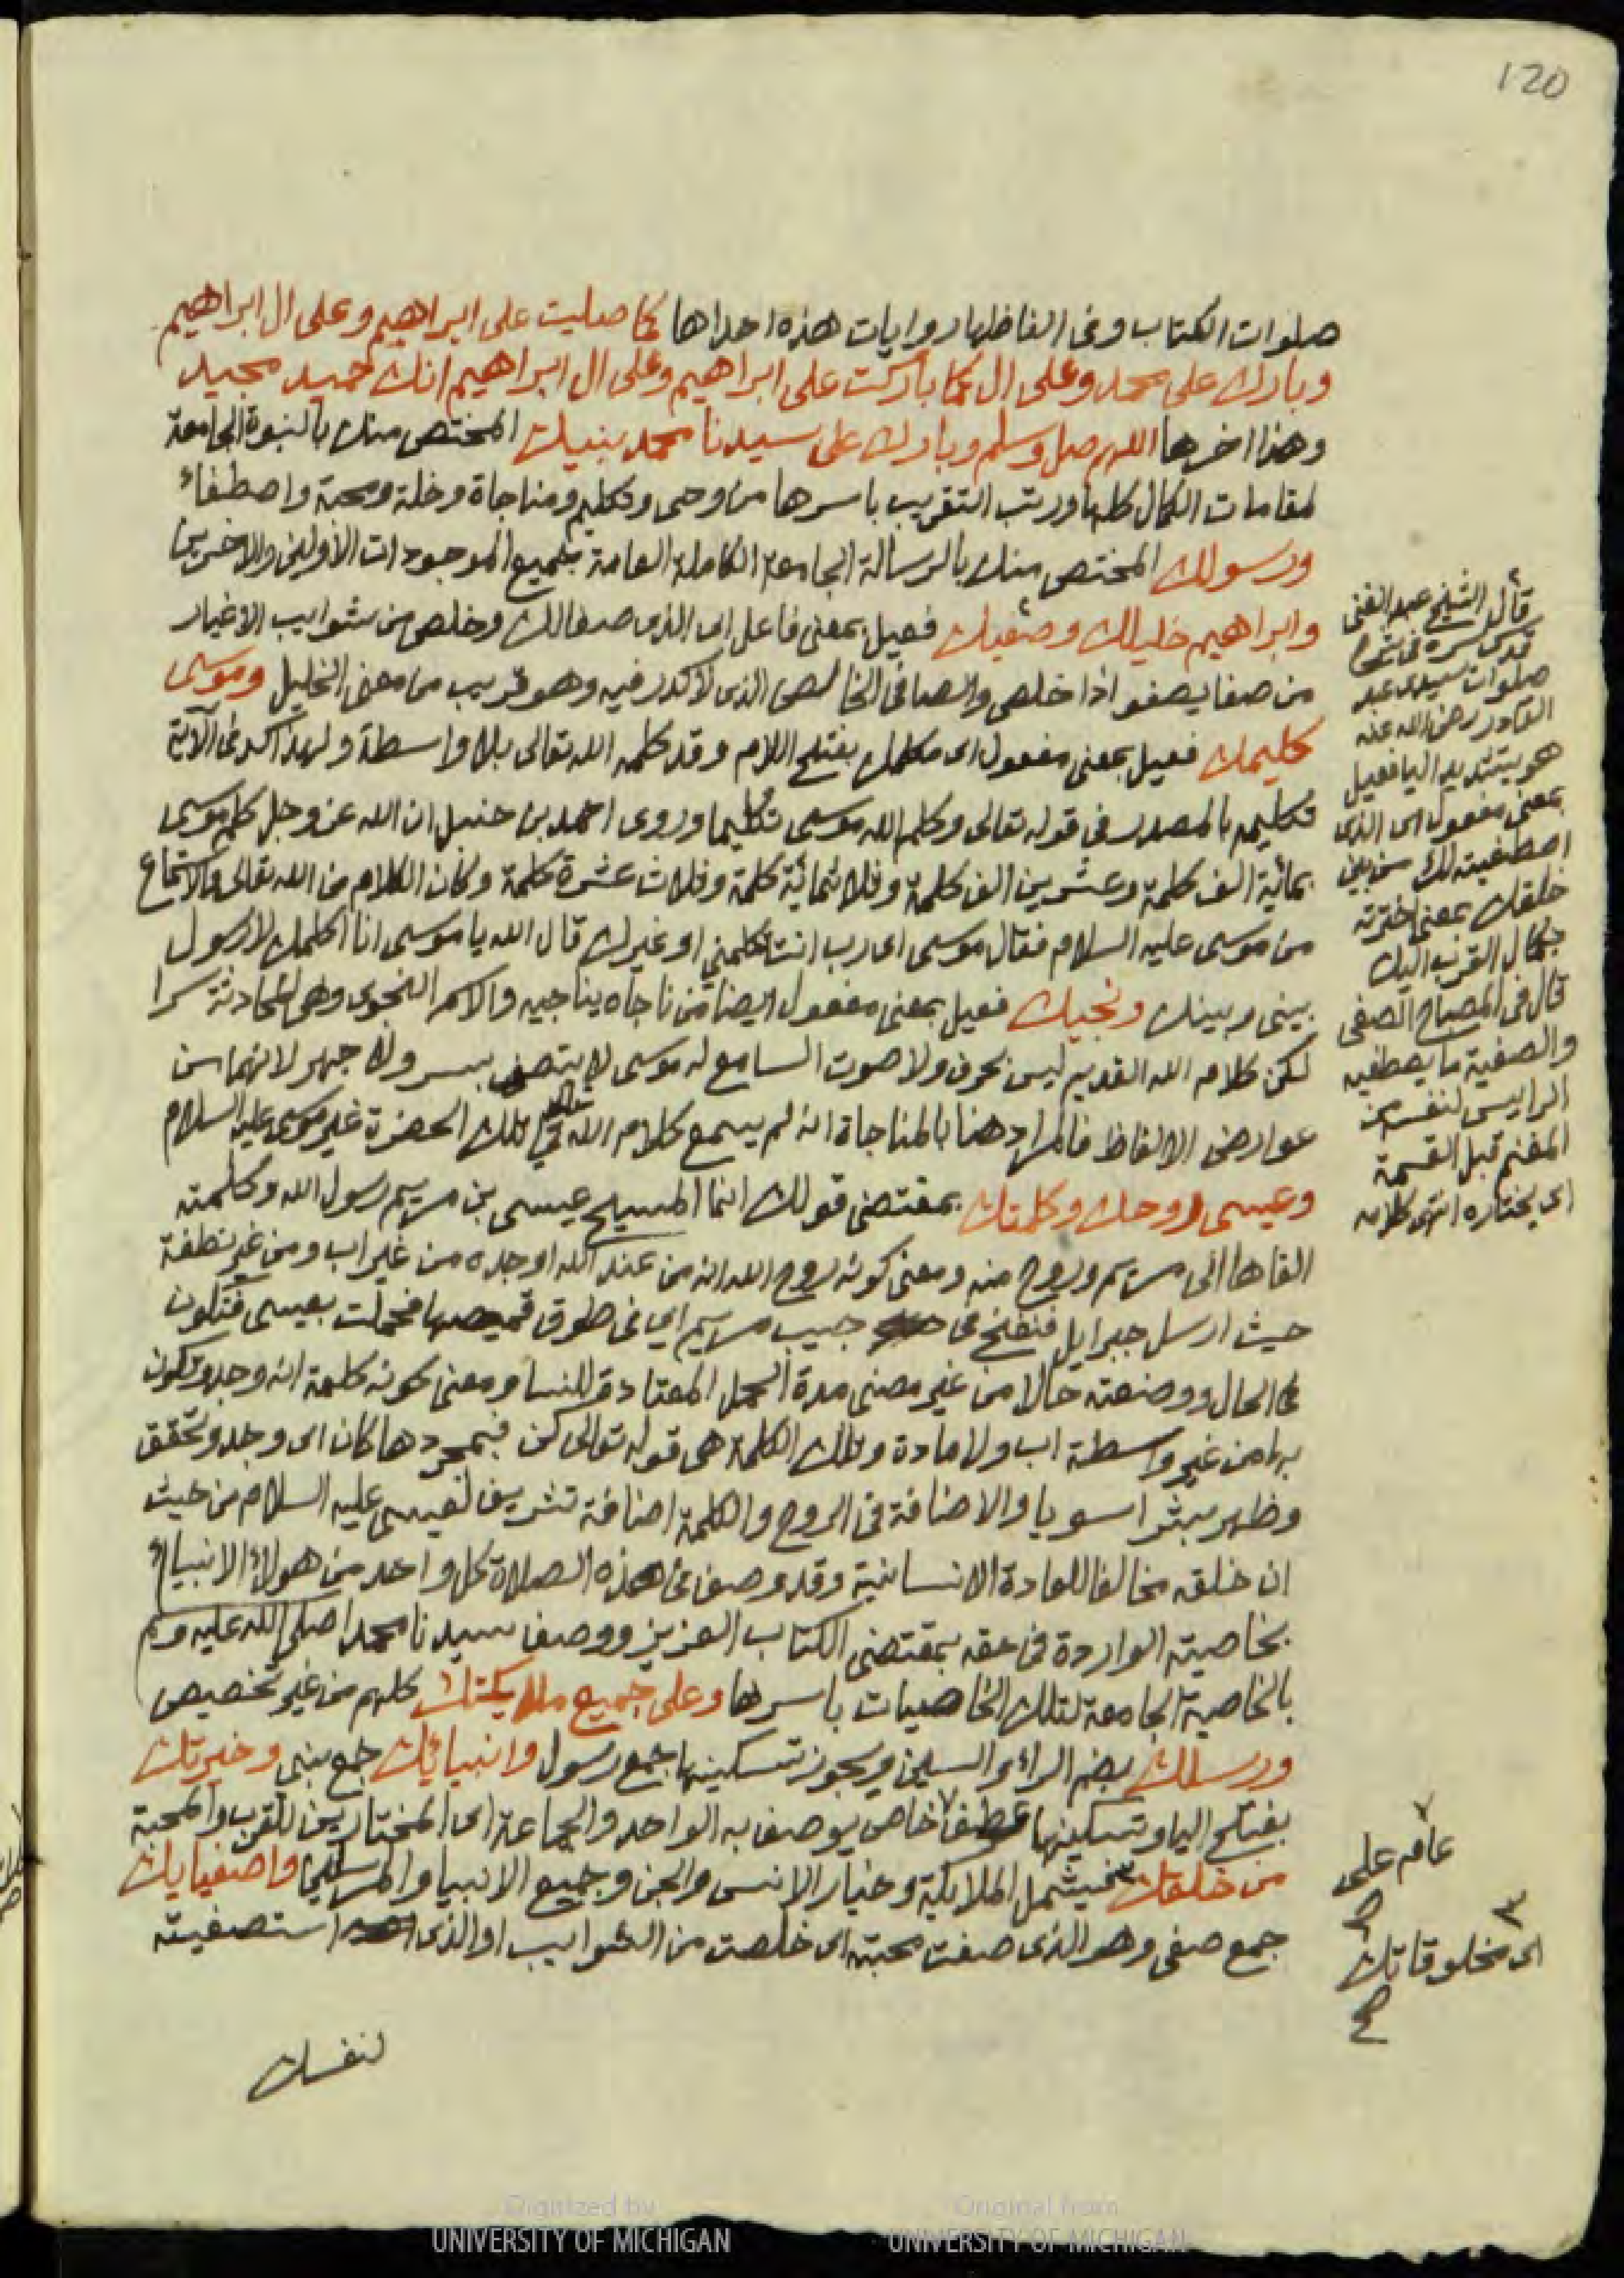 120
صلوات الكتاب وفى الفاظها روايات هذه احداها كما صليت على ابراهيم وعلى ال ابراهيم
وبارك على محمد وعلى ال كما باركت على ابراهيم وعلى ال ابراهيم انك حميد مجيد
وهذا اخرها اللهم صل وسلم وبارك على سيدنا محمد بنبيك المختص منك بالنبوة الجامعة
لمقامات الكمال كلها ورتب التقريب باسرها من وحى وتكليم ومناجاة وخلة ومحبة واصطفاء
ورسولك المختص منك بالرسالة الجامعة الكاملة العامة بجميع الموجودات الأولين والاخرين
وابراهيم خليلك وصفيك فعيل بمعنى فاعل اى الذى صفالك وخلص من شوايب الاغيار
من صفا يصفو اذا خلص والصافى الخالص الذى لا كدر فيه وهو قريب من معنى الخليل وموسى
كليمك فعيل بمعنى مفعول اى مكلمك بفتح اللام وقد كلمه الله تعالى بلا واسطة ولهذا اكد فى الآية
تكليمه بالمصدر فى قوله تعالى وكلم الله موسى تكليما وروى احمد بن حنبل ان الله عز وجل كلم موسى
بمائية الف كلمة وعشرين الف كلمة وثلاثمائية كلمة وثلاث عشرة كلمة وكان الكلام من الله تعالى والاستماع
من موسى عليه السلام فقال موسى اى رب انت تكلمني او غيرك قال الله يا موسى انا اكلمك لا رسول
بينى وبينك ونجيك فعيل بمعنى مفعول ايضا من ناجاه يناجيه والاسم النجوى وهى المحادثة سرا
لكن كلام الله القديم ليس بحرف ولا صوت السامع له موسى لا يتصف بسر ولا جهر لانهما من
عوارض الالفاظ فالمراد هنا بالمناجاة انه لم يسمع كلام الله تعالى فى تلك الحضرة غير موسى عليه السلام
وعيسى روحك وكلمتك بمقتضى قولك انما المسيح عيسى بن مريم رسول الله وكلمته
القاها الى مريم وروح منه ومعنى كونه روح الله انه من عند الله اوجده من غير اب ومن غير نطفة
حيث ارسل جبرايل فنفخ فى جيب مريم اي فى طوق قميصها فحملت بعيسى فتكون
فى الحال ووضعته حالا من غير مضى مدة الحمل المعتادة للنسا ومعنى كونه كلمة انه وجد وتكون
بها من غير واسطة اب ولا مادة وتلك الكلمة هى قوله تعالى كن فبمجردها كان اى وجد وتحقق
وظهر بشرا سويا والاضافة فى الروح والكلمة اضافة تشريف لعيسى عليه السلام من حيث
ان خلقه مخالفا للعادة الانسانية وقد وصف فى هذه الصلاة كل واحد من هولاء الانبياء
بخاصيته الواردة فى حقه بمقتضى الكتاب العزيز ووصف سيدنا محمدا صلى الله عليه وسلم
بالخاصية الجامعة لتلك الخاصيات باسرها وعلى جميع ملايكتك كلهم من غير تخصيص
ورسلك بضم الراء والسين ويجوز تسكينها جمع رسول وانبيائك جمع بنى وخيرتك
بفتح اليا وتسكينها عطف خاص يوصف به الواحد والجماعة اى المختارين للقرب والمحبة
من خلقك فيشمل الملايكة وخيار الانس والجن وجميع الانبيا والمرسلين واصفيايك
جمع صفى وهو الذى صفت محبته اى خلصت من الشوايب او الذى استصفيته
لنفسك
قال الشيخ عبد الغنى
قدس سره فى شرح
صلوات سيدى عبد
القادر رضى الله عنه
هو بتشديد اليا فعيل
بمعنى مفعول اى الذى
اصطفيته لك من بين
خلقك بمعنى اخترته
بكمال القرب اليك
قال فى المصباح الصفى
والصفية ما يصطفيه
الرايس لنفسه من
المغنم قبل القسمة
اى يختاره انتهى كلامه
عام على
صح
اى مخلوقاتك
صح
Digitized by
UNIVERSITY OF MICHIGAN
Original from
UNIVERSITY OF MICHIGAN